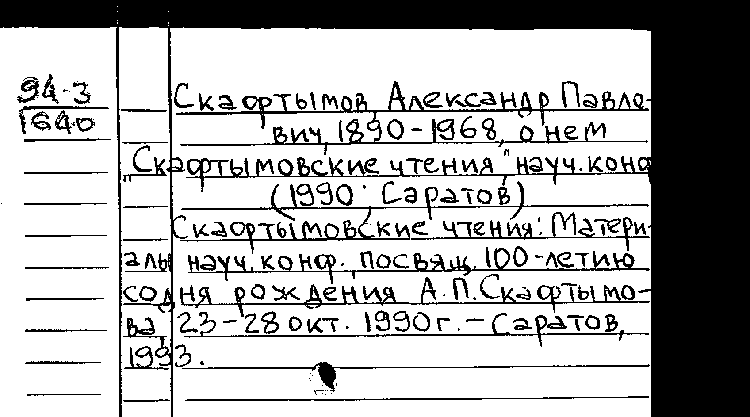 94-3
1640
Скафтымов, Александр Павло-
вич, 1890-1968, о нем
"Скафтымовские чтения", науч. конф
(1990; Саратов)
Скафтымовские чтения: Матери-
алы науч. конф., посвящ. 100-летию
со дня рождения А.П.Скафтымо-
ва, 23-28 окт. 1990г. - Саратов,
1993.